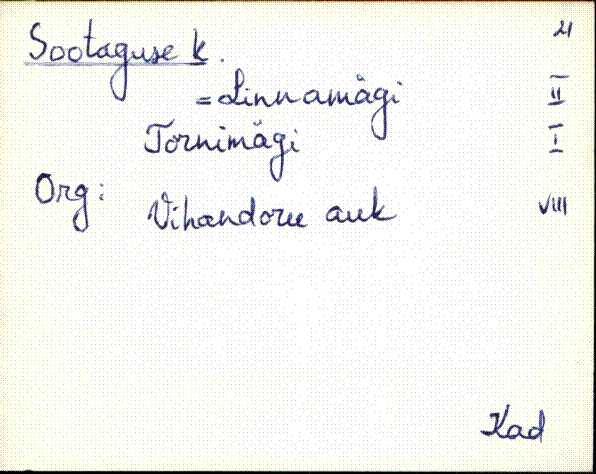 Sootaguse k. 21
= Linnamägi II
Tornimägi I
Org: Vihandoru auk VIII
Kad